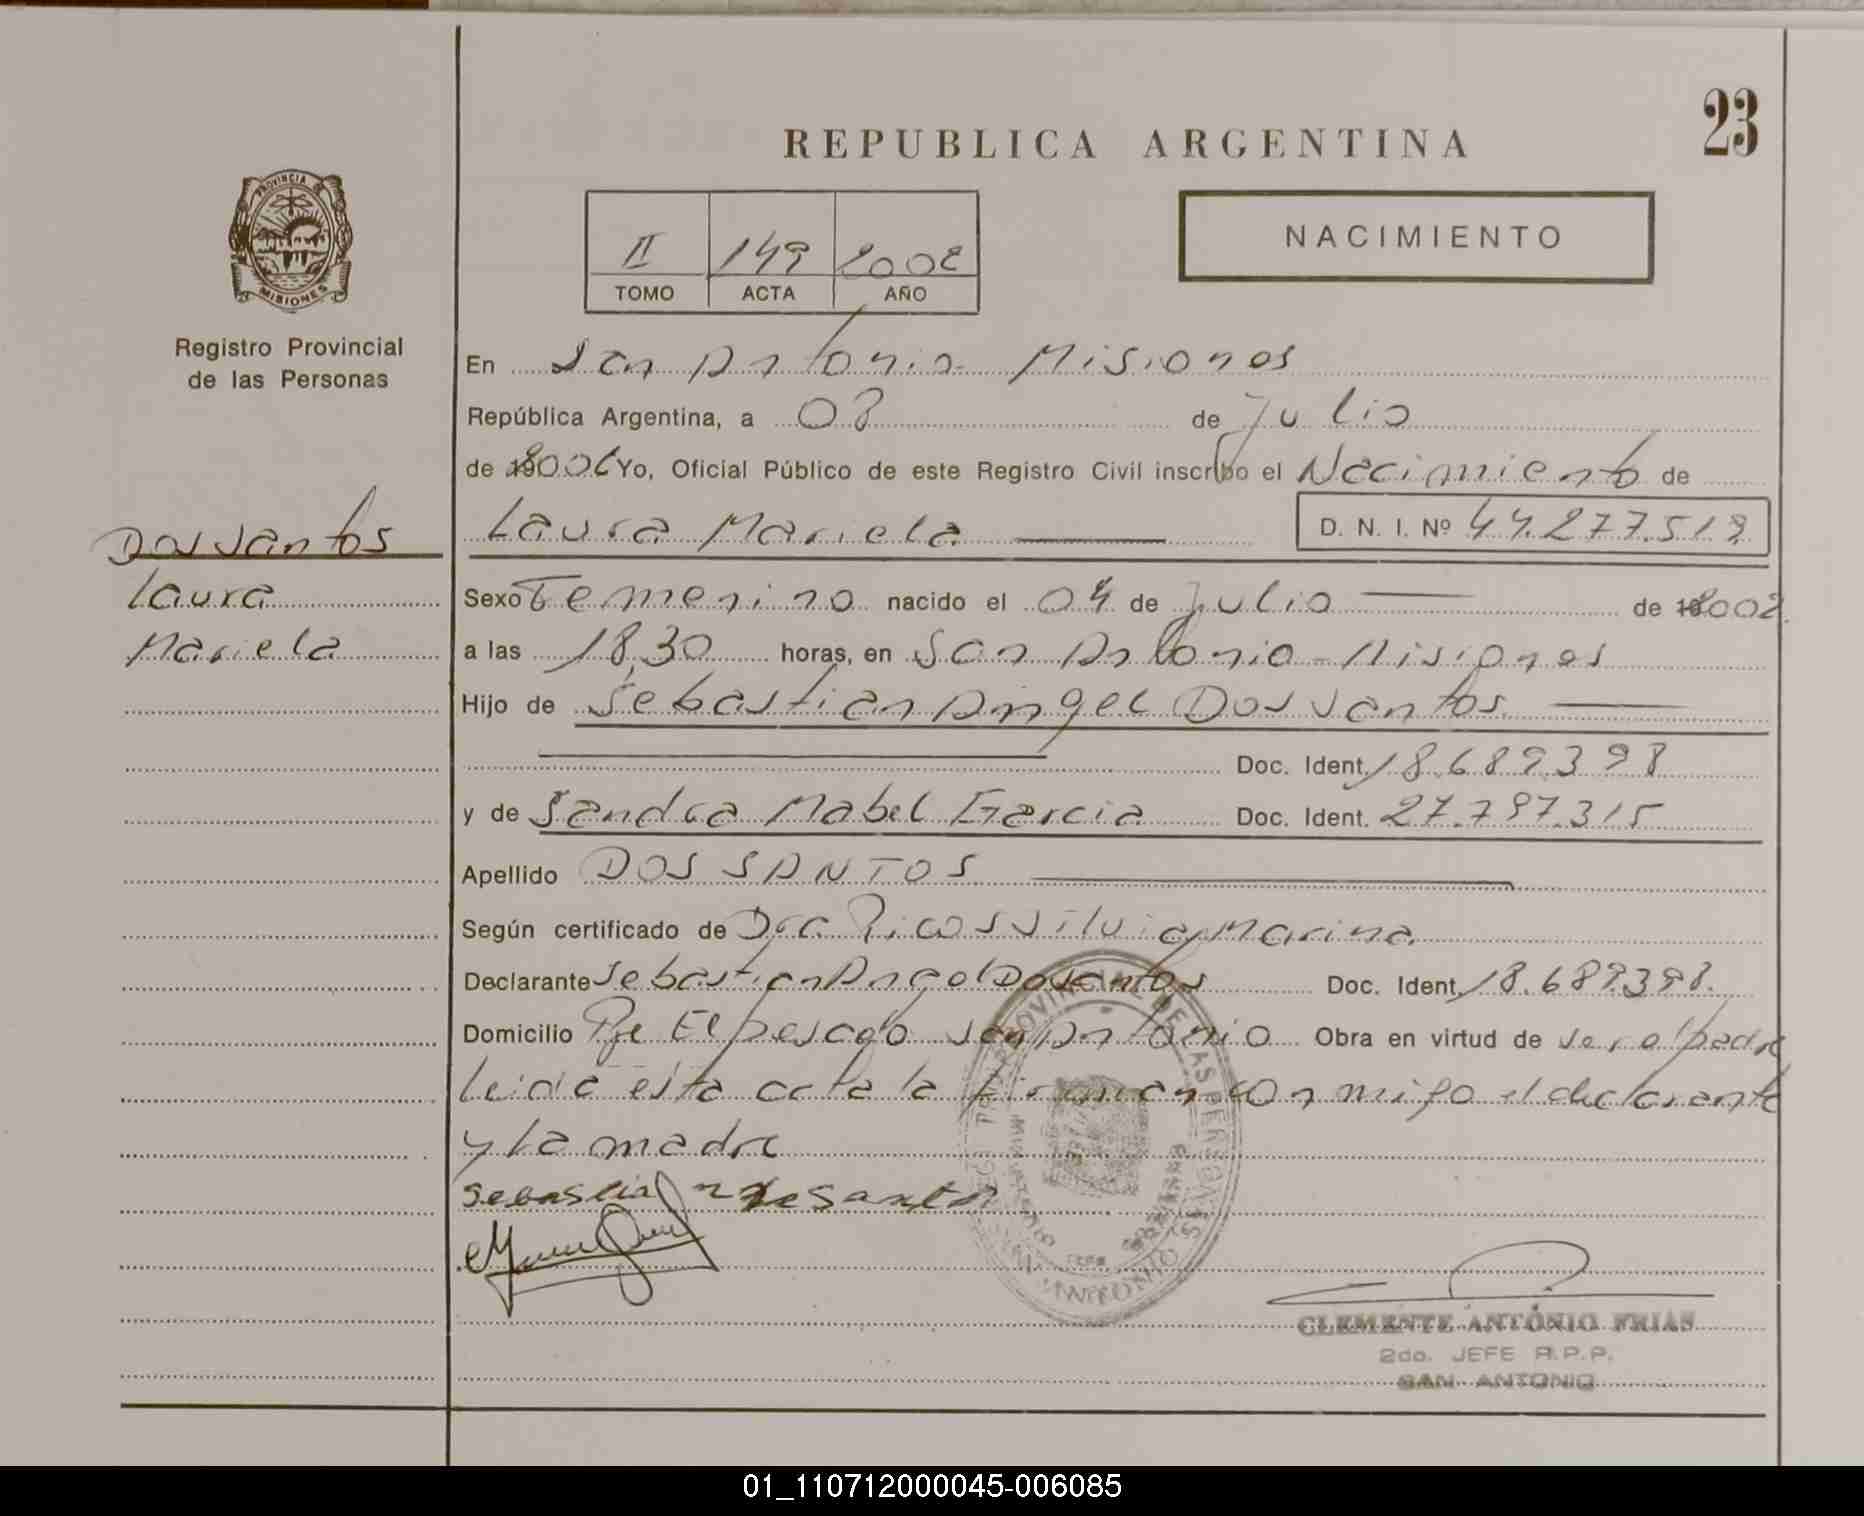 23
REPUBLICA ARGENTINA
PROVINCIA DE
MISIONES
Registro Provincial
de las Personas
NACIMIENTO
II 149 2002
TOMO ACTA AÑO
En San Antonio Misiones
República Argentina, a 08 de Julio
de 2002 Yo, Oficial Público de este Registro Civil inscribo el Nacimiento de
Dos Santos
Laura
Mariela
Laura Mariela D. N. I. Nº 44.277.519
Sexo Femenino nacido el 04 de Julio de 2002
a las 18,30 horas, en San Antonio - Misiones
Hijo de Sebastian Angel Dos Santos
Doc. Ident. 18.689.398
y de Sandra Mabel Garcia Doc. Ident. 27.797.315
Apellido DOS SANTOS
Según certificado de Dra. Ricos Silvia Marina
Declarante Sebastian Angel Dos Santos Doc. Ident. 18.689.398.
Domicilio Pje El pesado San Antonio Obra en virtud de ser el padre
leida esta acta la firman con migo el declarante
y la madre
CLEMENTE ANTÓNIO FRIAS
2do. JEFE R.P.P.
SAN ANTONIO
01_110712000045-006085